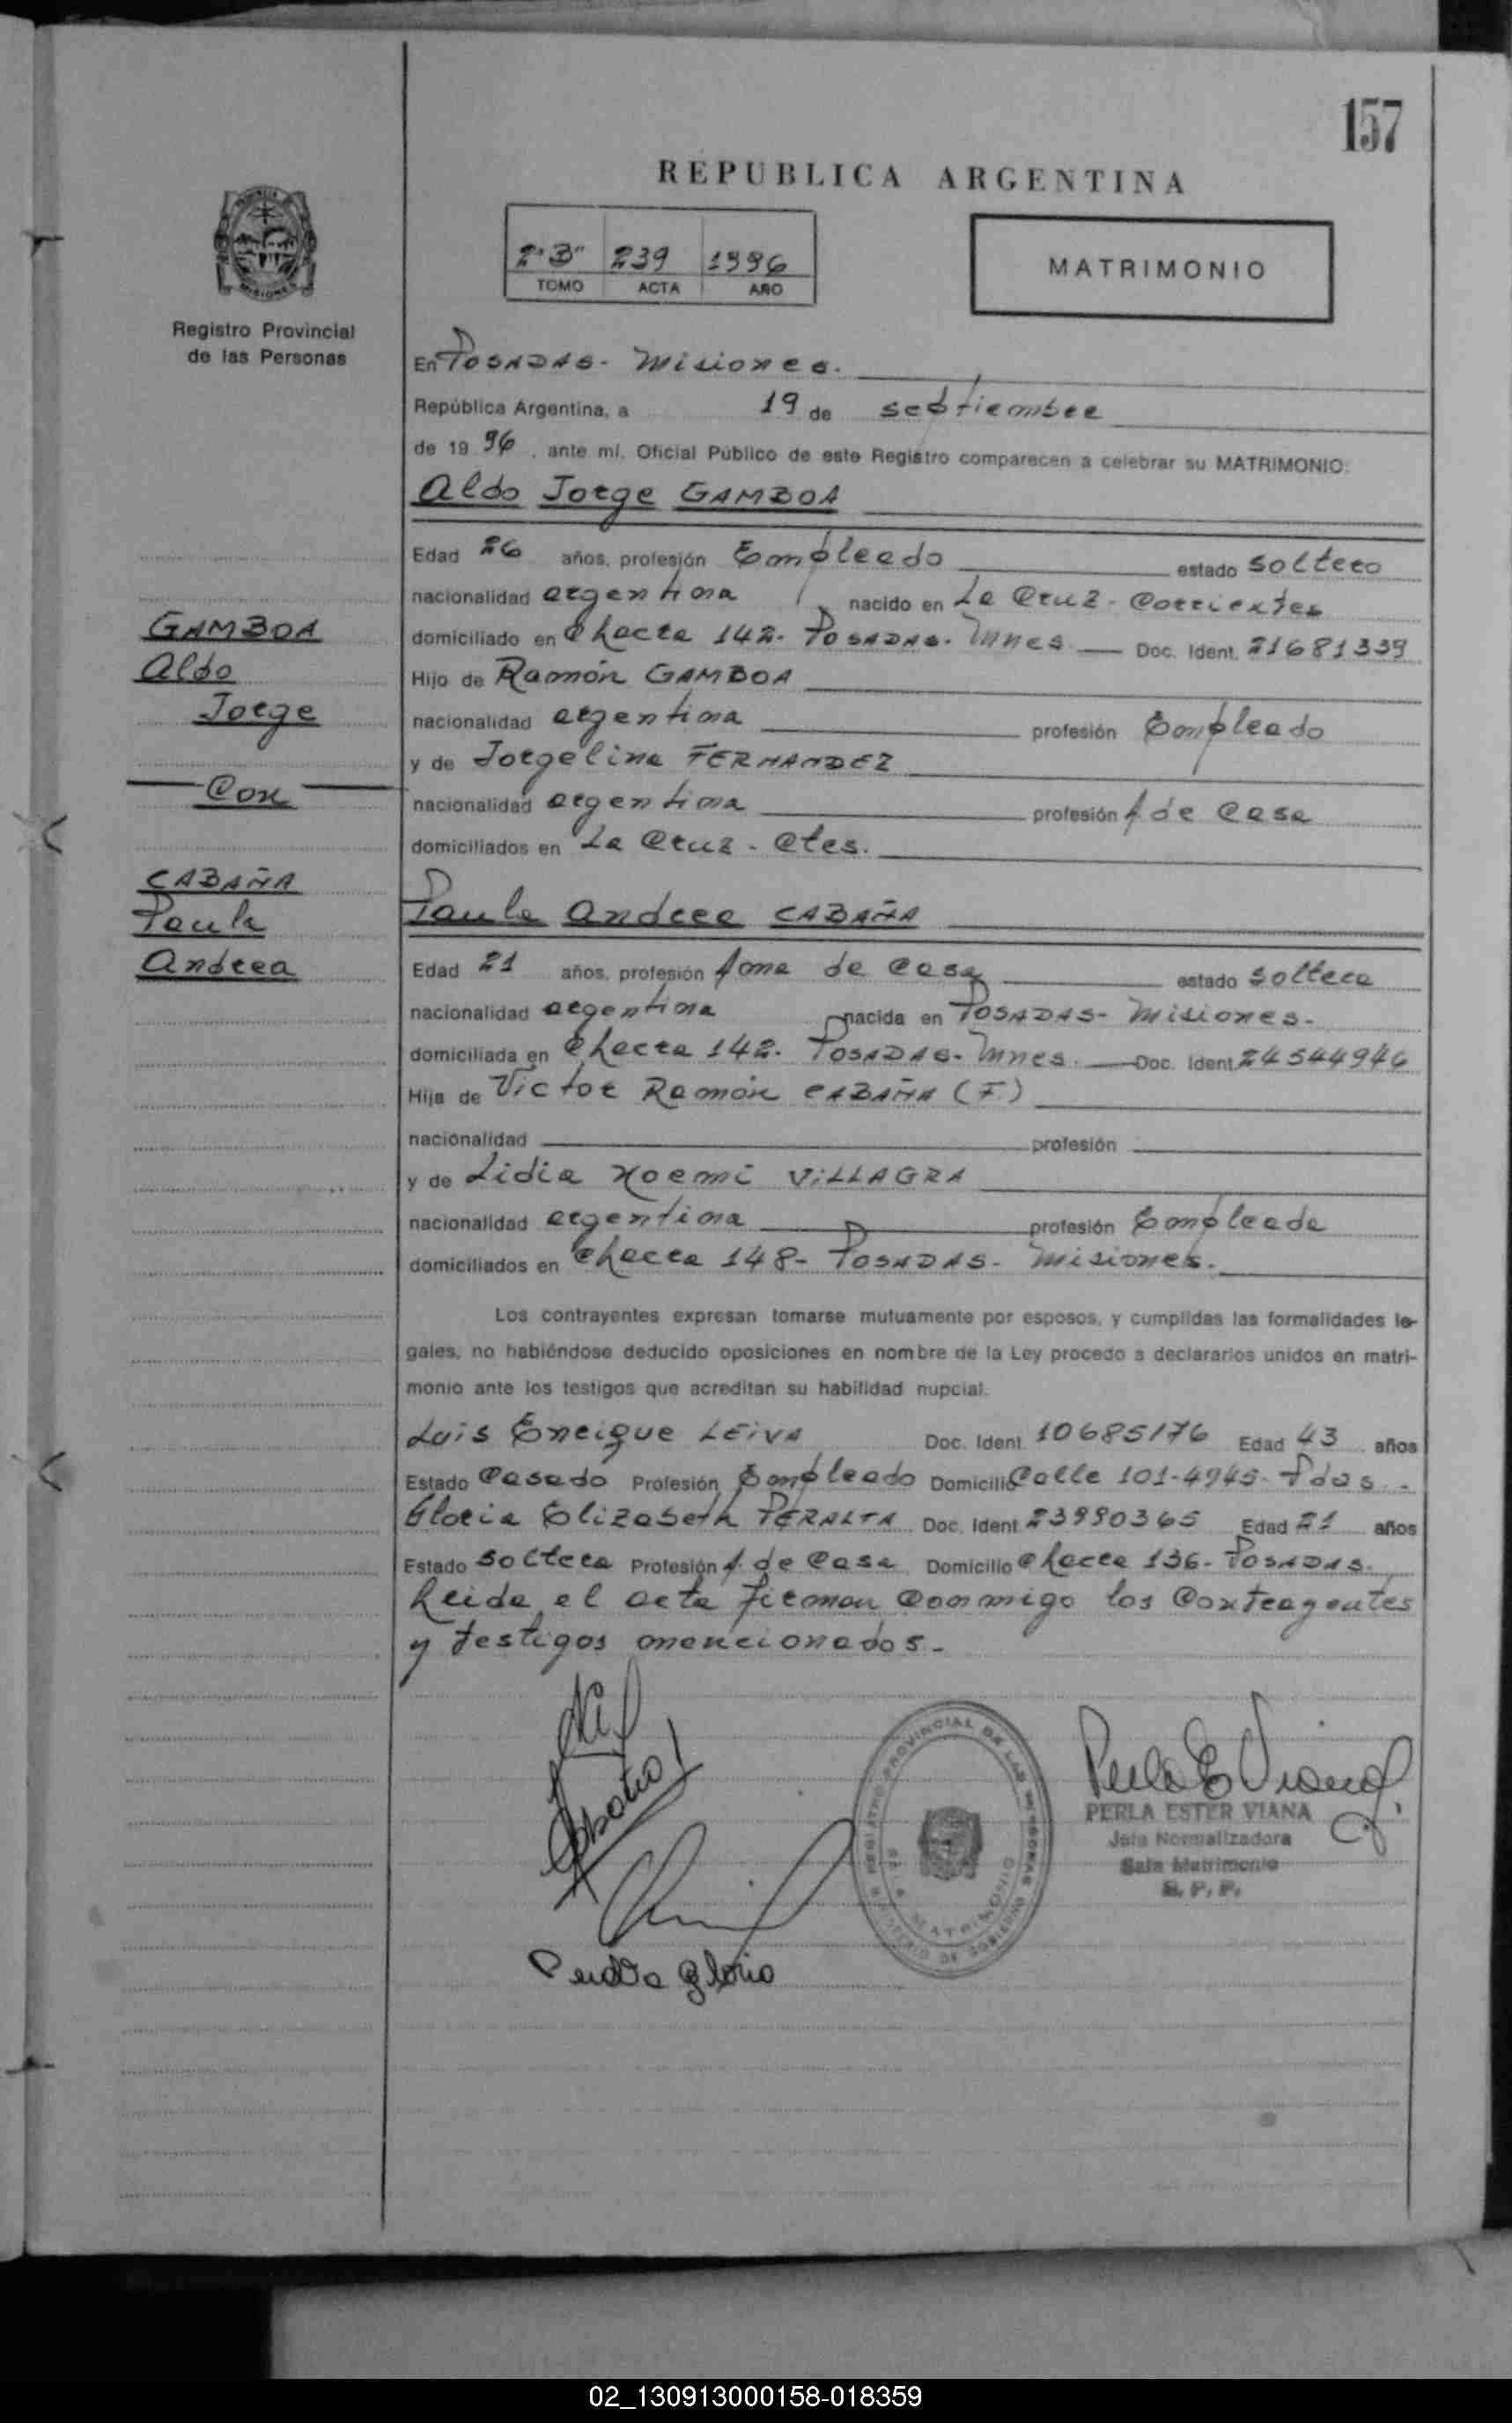 157
REPUBLICA ARGENTINA
2·B" 239 1996
TOMO ACTA AÑO
MATRIMONIO
Registro Provincial
de las Personas
En POSADAS - Misiones.
República Argentina, a 19 de septiembre
de 19 96, ante mí, Oficial Público de este Registro comparecen a celebrar su MATRIMONIO:
Aldo Jorge GAMBOA
Edad 26 años, profesión Empleado estado soltero
nacionalidad argentina nacido en La Cruz - Corrientes
domiciliado en Chacra 142 - POSADAS - Mnes Doc. Ident. 21681339
Hijo de Ramón GAMBOA
nacionalidad argentina profesión Empleado
y de Jorgelina FERNANDEZ
nacionalidad argentina profesión A de Casa
domiciliados en La Cruz - Ctes.
GAMBOA
Aldo
Jorge
Con
CABAÑA
Paula
Andrea
Paula Andrea CABAÑA
Edad 21 años, profesión Ama de Casa estado soltera
nacionalidad argentina nacida en POSADAS - Misiones.
domiciliada en Chacra 142 - POSADAS - Mnes. Doc. Ident. 24544946
Hija de Victor Ramón CABAÑA (F.)
nacionalidad profesión
y de Lidia Noemi VILLAGRA
nacionalidad argentina profesión Empleada
domiciliados en Chacra 148 - POSADAS - Misiones.
Los contrayentes expresan tomarse mutuamente por esposos, y cumplidas las formalidades le-
gales, no habiéndose deducido oposiciones en nombre de la Ley procedo a declararlos unidos en matri-
monio ante los testigos que acreditan su habilidad nupcial.
Luis Enrique LEIVA Doc. Ident. 10685176 Edad 43 años
Estado Casado Profesión Empleado Domicilio Calle 101-4945 - Pdas. -
Gloria Elizabeth PERALTA Doc. Ident. 23990365 Edad 21 años
Estado Soltera Profesión A. de Casa Domicilio Chacra 136 - POSADAS.
Leida el acta firman conmigo los Contrayentes
y testigos mencionados. -
REGISTRO PROVINCIAL DE LAS PERSONAS
SALA MATRIMONIO
MINISTERIO DE GOBIERNO
Perla E Viana
PERLA ESTER VIANA
Jefa Normalizadora
Sala Matrimonio
R. P. P.
Peralta Gloria
02_130913000158-018359